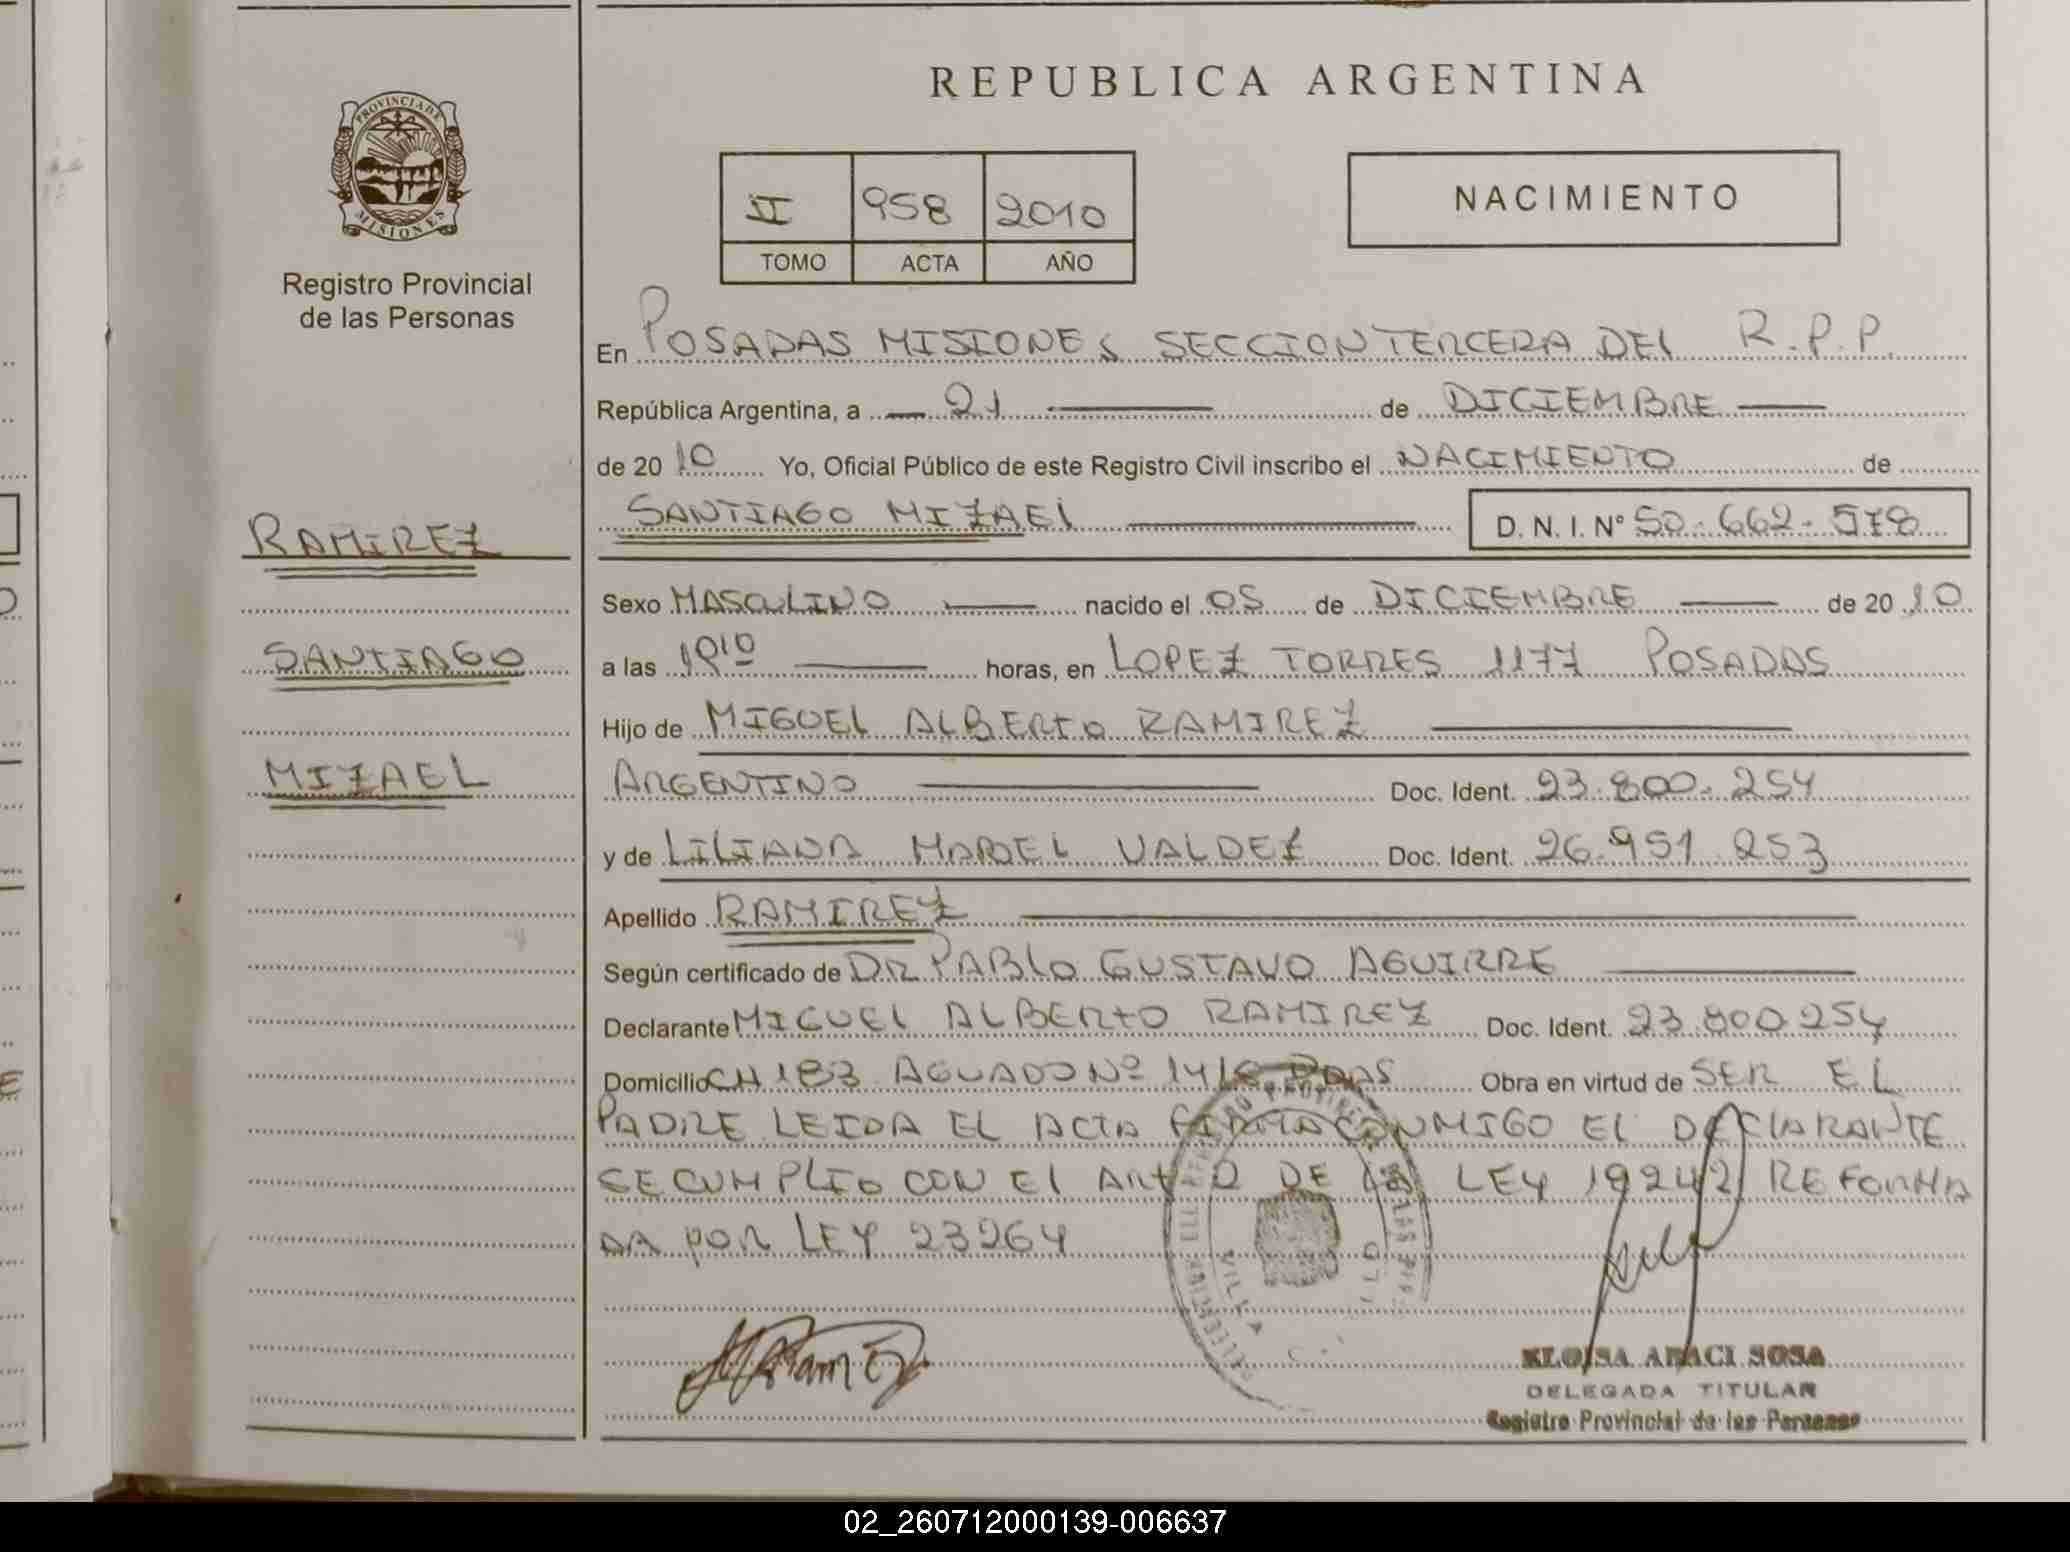 REPUBLICA ARGENTINA
PROVINCIA DE
MISIONES
Registro Provincial
de las Personas
II 958 2010
TOMO ACTA AÑO
NACIMIENTO
En POSADAS MISIONES SECCION TERCERA DEL R.P.P.
República Argentina, a 21 de DICIEMBRE
de 2010 Yo, Oficial Público de este Registro Civil inscribo el NACIMIENTO de
SANTIAGO MIZAEL D. N. I. N° 50.662.578
RAMIREZ
SANTIAGO
MIZAEL
Sexo MASCULINO nacido el 05 de DICIEMBRE de 2010
a las horas, en LOPEZ TORRES 1177 POSADAS
Hijo de MIGUEL ALBERTO RAMIREZ
ARGENTINO Doc. Ident. 23.800.254
y de LILIANA MABEL VALDEZ Doc. Ident. 26.951.253
Apellido RAMIREZ
Según certificado de DR PABLO GUSTAVO AGUIRRE
Declarante MIGUEL ALBERTO RAMIREZ Doc. Ident. 23.800.254
Domicilio CH 183 AGUADO Nº PDAS Obra en virtud de SER EL
PADRE LEIDA EL ACTA FIRMA CONMIGO EL DECLARANTE
SE CUMPLIO CON EL ART 2 DE LA LEY REFORMA
DA POR LEY 23264
ELOISA ARACI SOSA
DELEGADA TITULAR
Registro Provincial de las Personas
02_260712000139-006637